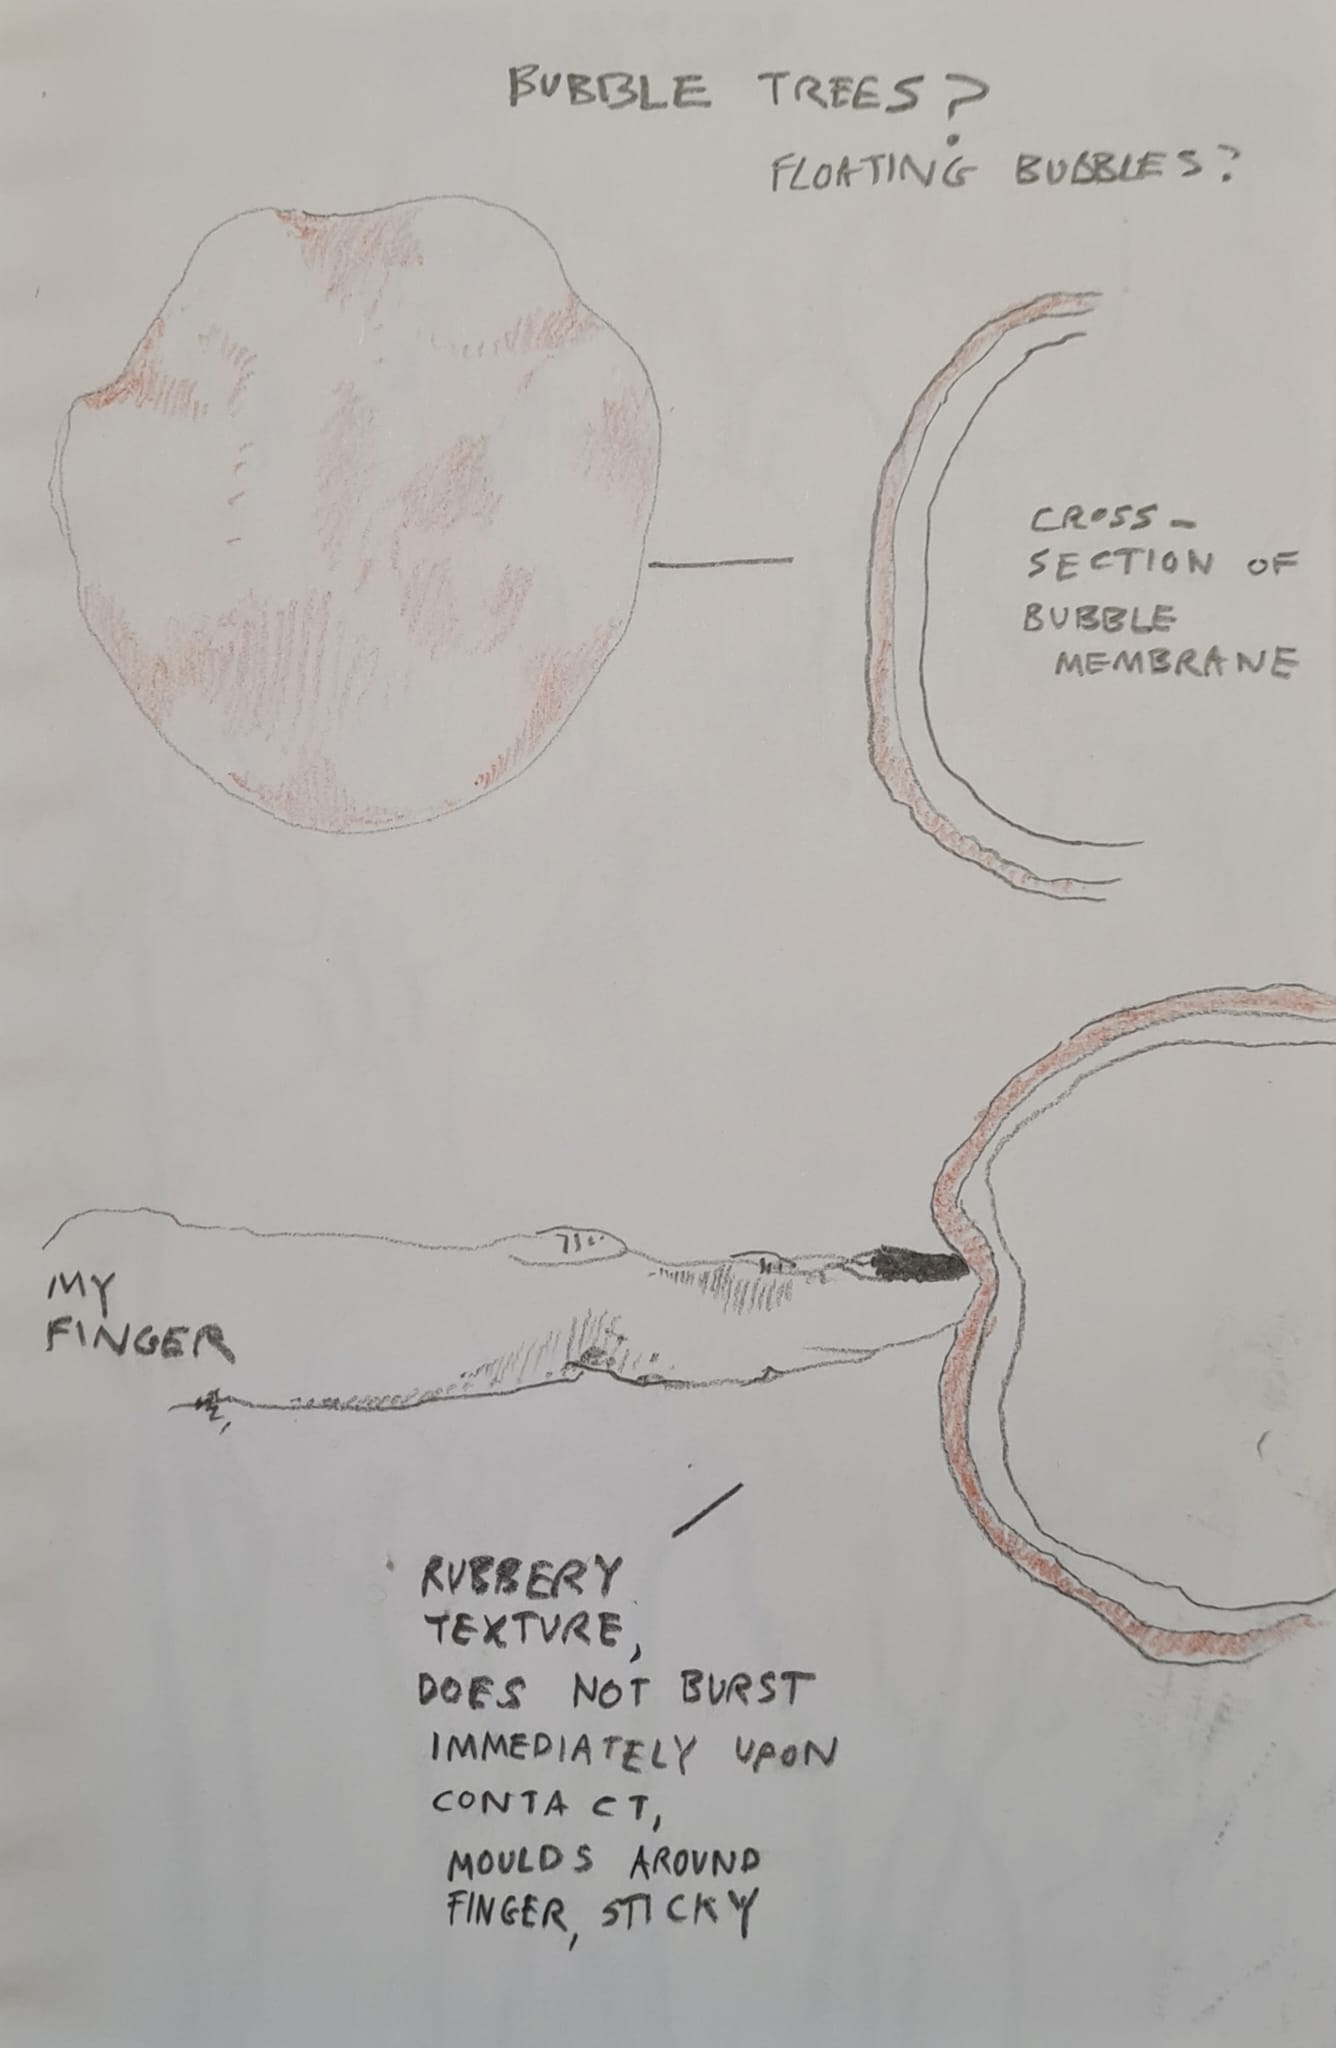 BUBBLE TREES?
FLOATING BUBBLES?
CROSS-
SECTION OF
BUBBLE
MEMBRANE
MY
FINGER
RUBBERY
TEXTURE,
DOES NOT BURST
IMMEDIATELY UPON
CONTACT,
MOULDS AROUND
FINGER, STICKY